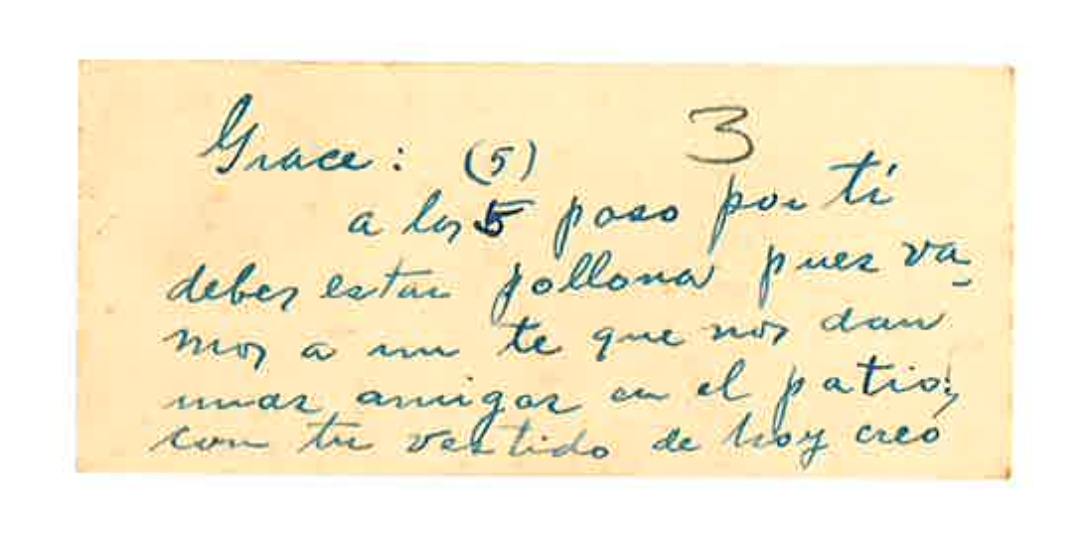 Grace: (5) 3
a las 5 paso por tí
debes estar pollona pues va-
mos a un te que nos dan
unas amigas en el patio;
con tu vestido de hoy creo